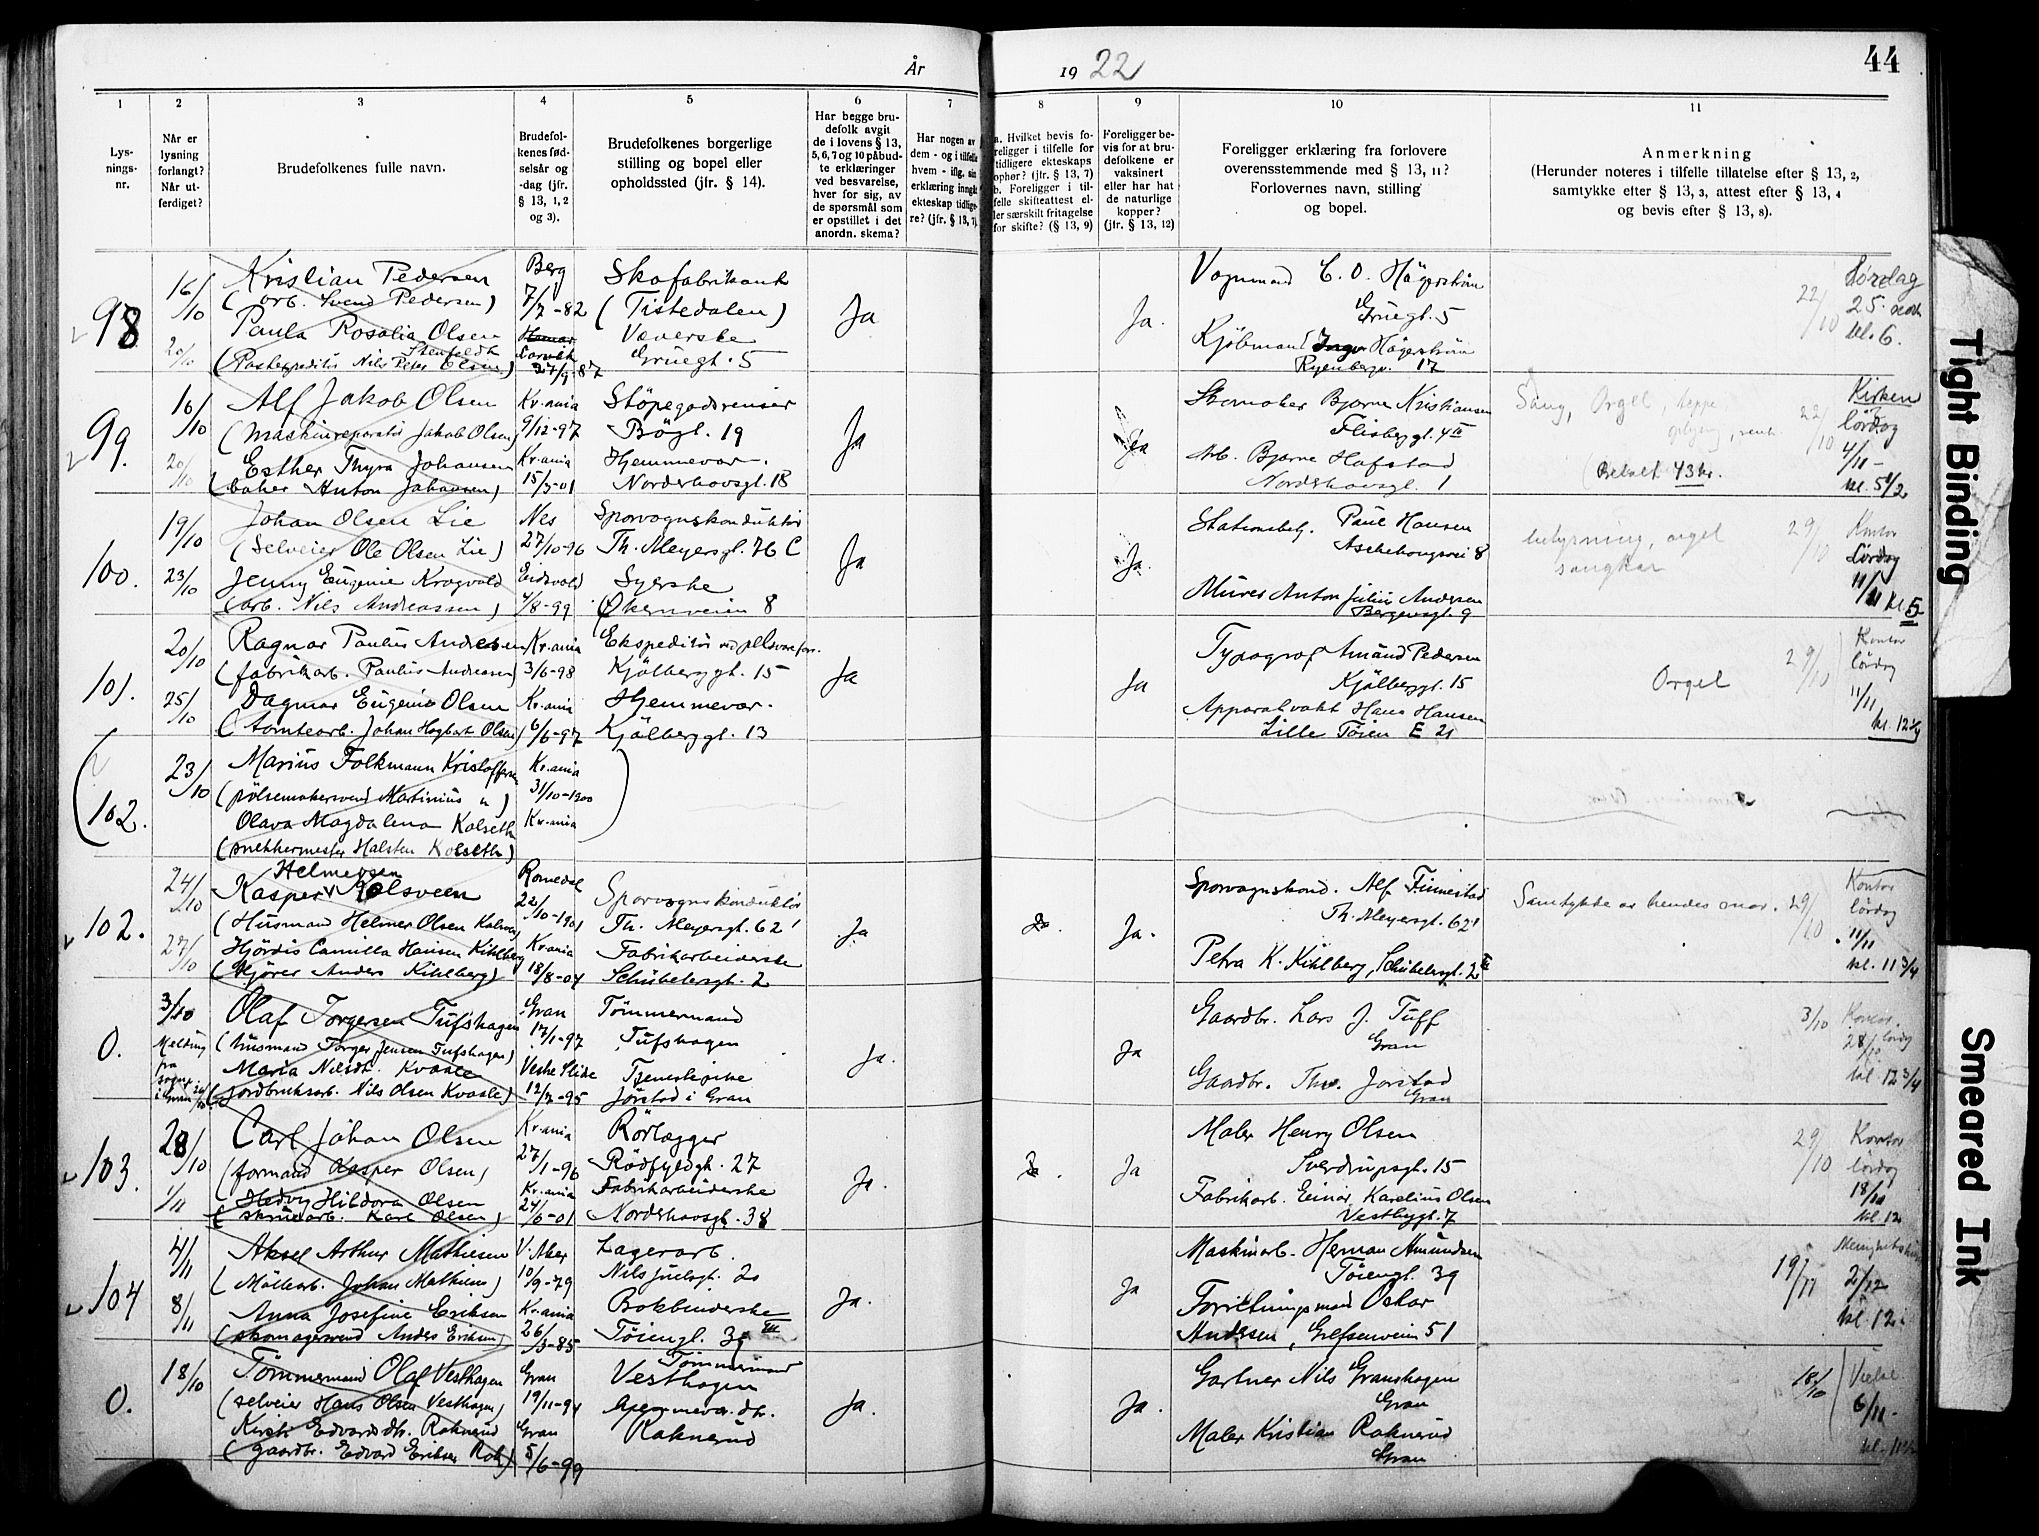 År
19 22
44
1
2
3
4
5
6
7
8
9
10
11
Lys-
nings-
nr.
Når er
lysning
forlangt?
Når ut-
ferdiget?
Brudefolkenes fulle navn.
Brudefol-
kenes fød-
selsår og
-dag (jfr.
§ 13, 1, 2
og 3).
Brudefolkenes borgerlige
stilling og bopel eller
opholdssted (jfr. § 14).
Har begge bru-
defolk avgit
de i lovens § 13,
5, 6, 7 og 10 påbud-
te erklæringer
ved besvarelse,
hver for sig, av
de spørsmål som
er opstillet i det
anordn. skema?
Har nogen av
dem - og i tilfelle
hvem - iflg. sin
erklæring inngått
ekteskap tidlige-
re? (jfr. § 13, 7).
a. Hvilket bevis fo-
religger i tilfelle for
tidligere ekteskaps
ophør? (jfr. § 13, 7)
b. Foreligger i til-
felle skifteattest el-
ler særskilt fritagelse
for skifte? (§ 13, 9)
Foreligger be-
vis for at bru-
defolkene er
vaksinert
eller har hat
de naturlige
kopper?
(jfr. § 13, 12)
Foreligger erklæring fra forlovere
overensstemmende med § 13, 11?
Forlovernes navn, stilling
og bopel.
Anmerkning
(Herunder noteres i tilfelle tillatelse efter § 13, 2,
samtykke efter § 13, 3, attest efter § 13, 4
og bevis efter § 13, 8).
98
16/10
20/10
Kristian Pedersen
(arb. Svend Pedersen)
Paula Rosalia Olsen
Stenfeldt
(Postexpeditør Nils Peter Olsen)
Berg
7/7-82
Larvik
27/9-87
Skofabrikant
(Tistedalen)
Væverske
Gruegt. 5
Ja
Ja.
Vognmand C. O. Hägerström
Gruegt. 5
Kjöbmand Hägerström
Ryenbergv. 17
22/10
Lördag
25. nov.
kl. 6.
99.
16/10
20/10
Alf Jakob Olsen
(Maskinreparatör Jakob Olsen)
Esther Thyra Johansen
(baker Anton Johansen)
Kr.ania
9/12-97
Kr.ania
15/3-01
Stöpegodsrenser
Bögt. 19
Hjemmevær.
Nordrehovsgt. 18
Ja
Ja
Skomaker Bjarne Kristiansen
Flisbyggt. 4 III
Arb. Bjarne Hafstad
Nordrehovsgt. 1
Sang, Orgel, teppe
(Betalt 43 kr.
22/10
Kirken
lördag
4/11-
kl. 5 1/2
100.
19/10
23/10
Johan Olsen Lie
(Selveier Ole Olsen Lie)
Jenny Eugenie Krogvold
(arb. Nils Andreassen)
Nes
27/10-96
Eidsvold
4/8-99
Sporvognskonduktör
Th. Meyersgt. 76 C
Syerske
Økernveien 8
Ja
Ja.
Stationsbetj. Paul Hansen
Aschehougsvei 8
Murer Anton Julius Andersen
Bergensgt. 9
belysning, orgel
sangkor
29/10
Kontor
Lördag
11/11 kl 5
101.
20/10
25/10
Ragnar Paulus Andresen
(fabrikarb. Paulus Andresen)
Dagmar Eugenie Olsen
(tomtearb. Johan Hagbart Olsen)
Kr.ania
3/6-98
Kr.ania
6/6-97
Ekspeditör ved pølsevareforr.
Kjölberggt. 15
Hjemmevær.
Kjölberggt. 13
Ja
Ja
Typograf Amund Pedersen
Kjölberggt. 15
Apparatvakt Hans Hansen
Lille Töien E 21
Orgel
29/10
Kontor
lördag
11/11
kl. 12 1/4
(102.
23/10
Marius Folkmann Kristoffersen
(pölsemakersvend Martinius ")
Olava Magdalena Kolseth
(snekkermester Halsten Kolseth)
Kr.ania
31/10-1900
Kr.ania
102.
24/10
27/10
Helmersen
Kasper Kolsveen
(Husmand Helmer Olsen Kolsveen)
Hjördis Camilla Hansen Kihlberg
(Kjörer Anders Kihlberg)
Romedal
22/10-1901
Kr.ania
18/8-04
Sporvognskonduktör
Th. Meyersgt. 62 I
Fabrikarbeiderske
Schübelersgt. 2
Ja
Ja.
Ja.
Sporvognskond. Alf Finnestad
Th. Meyersgt. 62 I
Petra K. Kihlberg, Schübelersgt. 2 III
Samtykke av hendes mor.
29/10
Kontor
lördag
11/11
kl. 11 3/4
0.
3/10
Melding
fra
sogne
i Gran
Olaf Torgersen Tufshagen
(husmand Torger Jensen Tufshagen)
Maria Nilsdt. Kvaale
(jordbruksarb. Nils Olsen Kvaale)
Gran
17/1-97
Vestre Slidre
12/7-95
Tömmermand
Tufshagen
Tjenestepike
Jorstad i Gran
Ja.
Ja
Gaardbr. Lars J. Tuff
Gran
Gaardbr. Thv. Jorstad
Gran
3/10
Kontor
28/10 lördag
kl. 12 3/4
103.
28/10
1/11
Carl Johan Olsen
(formand Kasper Olsen)
Hedvig Hildora Olsen
(skruearb. Karl Olsen)
Kr.ania
27/1-96
Kr.ania
24/6-01
Rörlægger
Rödfyldgt. 27
Fabrikarbeiderske
Nordrehovsgt. 38
Ja.
Ja
Maler Henry Olsen
Sverdrupsgt. 15
Fabrikarb. Einar Karelius Olsen
Vestbygt. 7
29/10
Kontor
lördag
18/11
kl. 12
104
4/11
8/11
Aksel Arthur Mathiesen
(Möllearb. Johan Mathiesen)
Anna Josefine Eriksen
(skomagersvend Anders Eriksen)
V. Aker
10/9-79
Kr.ania
26/3-85
Lagerarb.
Nils Juelsgt. 20
Bokbinderske
Töiengt. 39 III
Ja.
Ja
Maskinarb. Herman Amundsen
Töiengt. 39
Forretningsmand Oskar
Andersen, Grefsenveien 51
19/11
2/12
kl. 12
0.
18/10
Tömmermand Olaf Vesthagen
(selveier Hans Olsen Vesthagen)
Kirsti Edvardsdtr. Raknerud
(gaardbr. Edvard Eriksen Rak.)
Gran
19/11-94
Gran
5/6-99
Tömmermand
Vesthagen
Hjemmevær. dtr.
Raknerud
Ja.
Ja.
Gartner Nils Granshagen
Gran
Maler Kristian Raknerud
Gran
18/10
Vielse
6/11-
Tight Binding
Smeared Ink